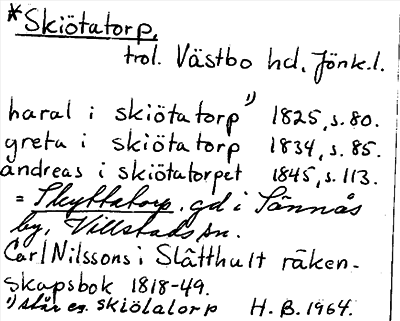 *Skiötatorp,
trol. Västbo hd, Jönk.l.
haral i skiötatorp¹⁾ 1825, s. 80.
greta i skiötatorp 1834, s. 85.
andreas i skiötatorpet 1845, s. 113.
= Skyttatorp, gd i Sännås
by, Villstads sn.
Carl Nilssons i Slätthult räken-
skapsbok 1818-49.
¹⁾ står eg. skiölatorp H. B. 1964.